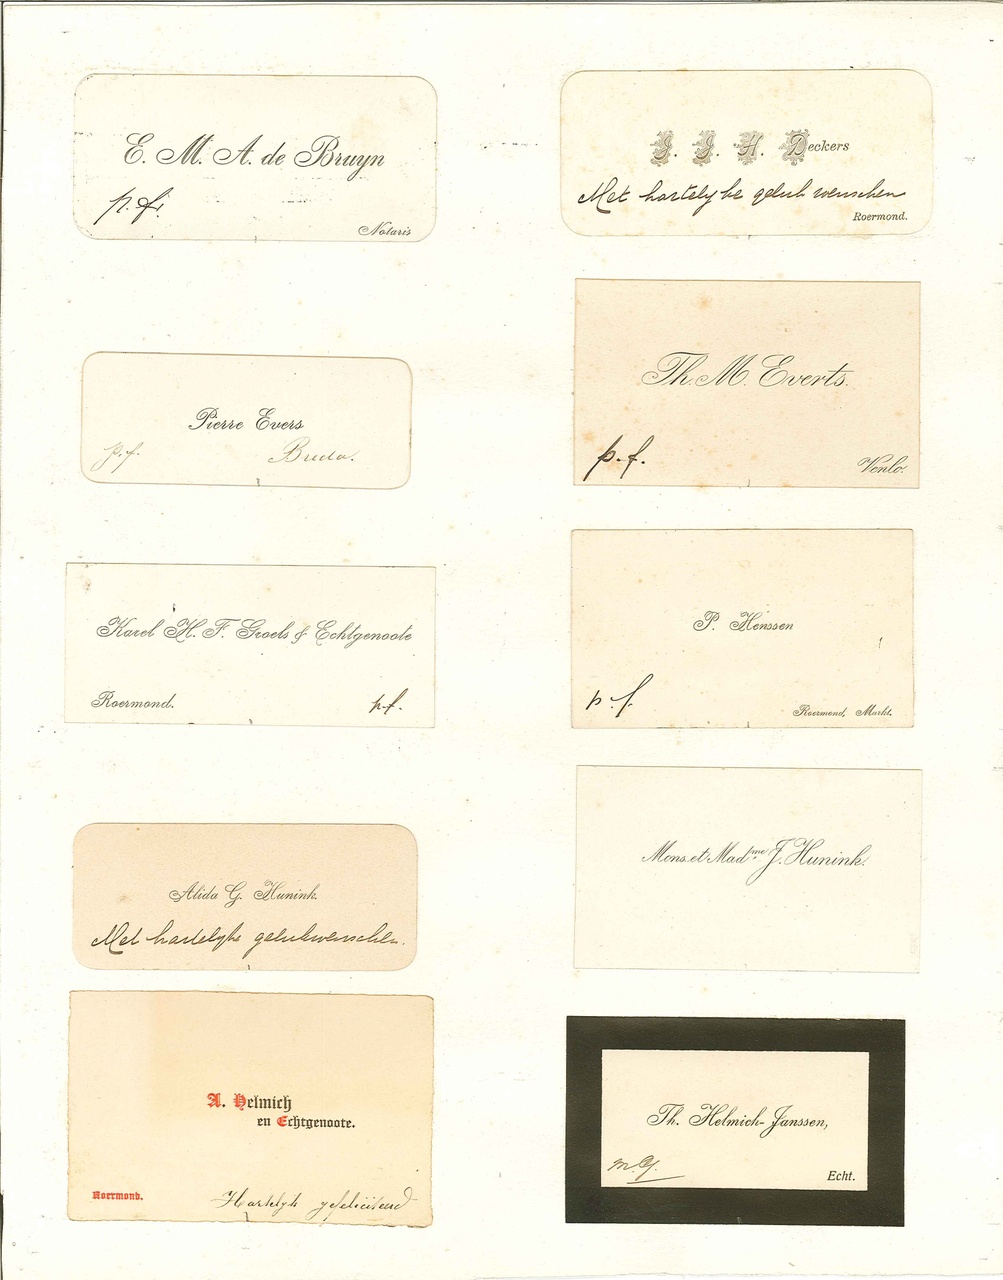 E. M. A. de Bruyn
p. f.
Notaris
J. J. H. Deckers
Met hartelyke gelukwenschen
Roermond.
Pierre Evers
p. f.
Breda.
Th. M. Everts.
p. f.
Venlo.
Karel H. F. Groels & Echtgenoote
Roermond.
p. f.
P. Henssen
p. f.
Roermond, Markt.
Alida G. Hunink.
Met hartelyke gelukwenschen.
Mons. et Madme J. Hunink.
A. Helmich
en Echtgenoote.
Roermond.
Hartelyk gefeliciteerd
Th. Helmich-Janssen,
Echt.